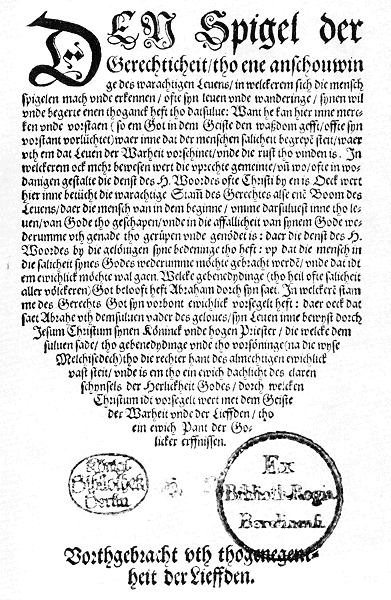 DEN Spigel der
Gerechticheit/tho ene anschouwin
ge des warachtigen Levens/in welckerem sich die mensch
spigelen mach unde erkennen/ofte syn leven unde wanderinge/synen wil
unde begerte enen thoganck heft tho datsulve: Want he kan hier inne mer-
ken unde vorstaen (so em Got in dem Geiste den waßdom gefft/offte syn
vorstant vorlüchtet) waer inne dat der menschen salicheit begrepē steit/waer
vth em dat Leven der Warheit vorschinet/unde die rust tho vinden is. In
welckerem ock mehr bewesen wert die vprechte gemeinte/vñ wo/ofte in wo-
danigen gestalte die denst des H. Woordes ofte Christi by en is Ock wert
hier inne belücht die warachtige Stam des Gerechts alse enē Boom des
Levens/daer die mensch van in dem beginne/umme darsulvest inne tho le-
ven/van Gode tho geschapen/unde in die affallicheit van synem Gode we-
derumme vth genade tho gerüpen unde genödet is: daer die denst des H.
Woordes by die gelövigen syne bedeninge tho heft: vp dat die mensch in
die salicheit synes Godes wederumme möchte gebracht werdē/unde dat idt
em ewichlick möchte wal gaen. Welcke gebenedydinge (tho heil ofte salicheit
aller völckeren) Got belooft heft Abraham dorch syn saet. In welckerē stam
me des Gerechts Got syn vorbont ewichlick vorsegelt heft: daer ock dat
saet Abrahe vth demsulven vader des geloves/syn Leven inne bewyst dorch
Jesum Christum synen Könnick unde hogen Priester/die welcke dem
sulven sade/tho gebenedydinge unde tho vorsöninge (na die wyse
Melchisedech) tho die rechter hant des almechtigen ewichlick
vast steit/unde is em tho ein ewich dachlicht des claren
schynsels der Herlickheit Godes/dorch welcken
Christum idt vorsegelt wert met dem Geiste
der Warheit unde der Liefften/tho
ein ewich Pant der Go-
licker erffnissen.
Königl.
Bibliothek
Berlin
Ex
Biblioth. Regia
Berolinensi.
Vorthgebracht vth thogenegent-
heit der Lieffden.